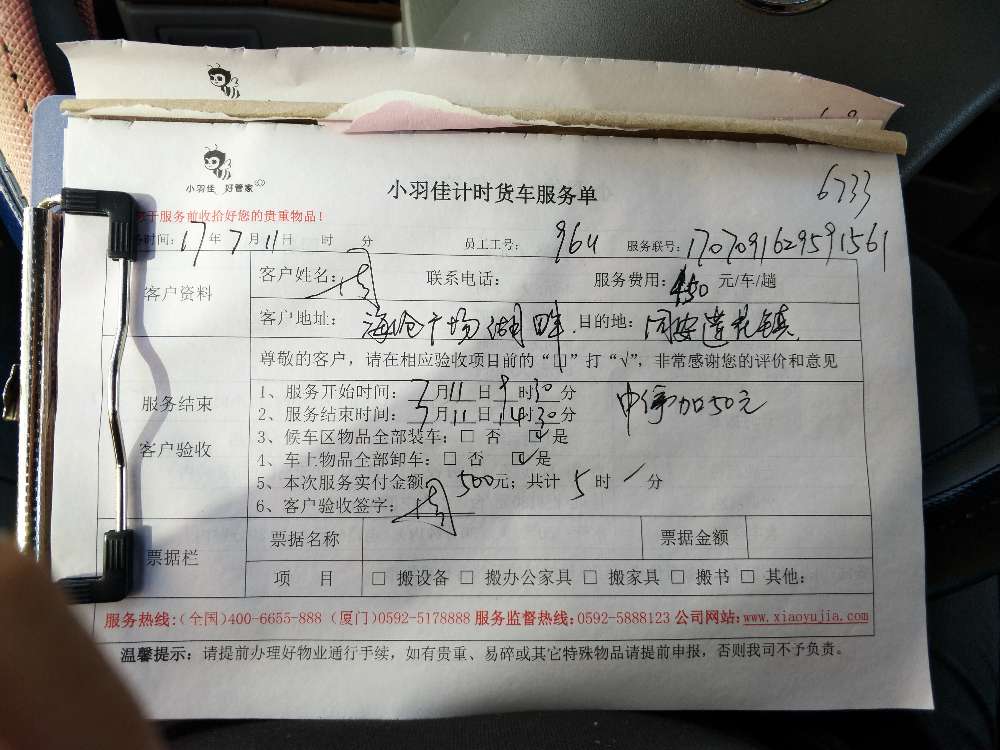 小羽佳 好管家
小羽佳计时货车服务单
6733
于服务前收拾好您的贵重物品！
务时间：17年7月11日 时 分 员工工号：964 服务联号：1707091629591561
客户资料
客户姓名： 联系电话： 服务费用：450 元/车/趟
客户地址：海沧广场湖畔 目的地：同安莲花镇
服务结束
客户验收
尊敬的客户，请在相应验收项目前的“口”打“√”，非常感谢您的评价和意见
1、服务开始时间：7月11日9时30分
中停加50元
2、服务结束时间：7月11日14时30分
3、候车区物品全部装车：□ 否 ☑是
4、车上物品全部卸车：□ 否 ☑是
5、本次服务实付金额：500元；共计 5 时 / 分
6、客户验收签字：
票据栏
票据名称 票据金额
项 目 □ 搬设备 □ 搬办公家具 □ 搬家具 □ 搬书 □ 其他：
服务热线：（全国）400-6655-888（厦门）0592-5178888 服务监督热线：0592-5888123 公司网站：www.xiaoyujia.com
温馨提示：请提前办理好物业通行手续，如有贵重、易碎或其它特殊物品请提前申报，否则我司不予负责。